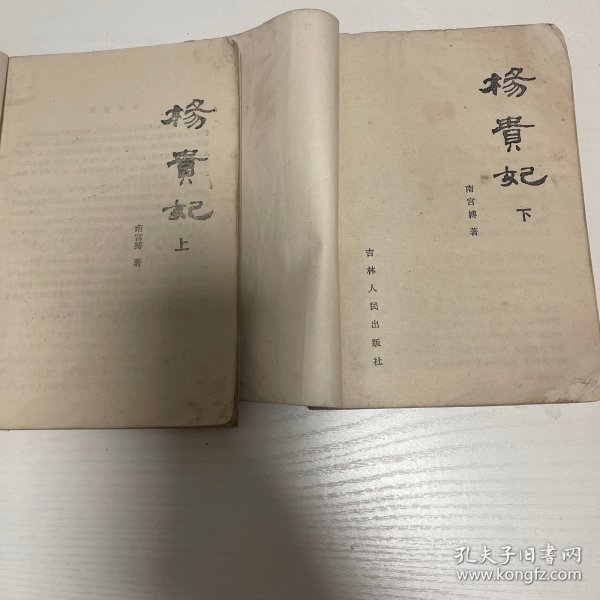 楊貴妃
上
南宫搏 著
楊貴妃
下
南宫搏 著
吉林人民出版社
孔夫子旧书网
www.kongfz.com